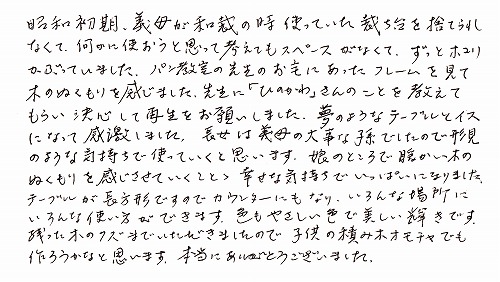 昭和初期、義母が和裁の時使っていた裁ち台を捨てられ
なくて、何かに使おうと思って考えてもスペースがなくて、ずっとホコリ
かぶっていました。パン教室の先生のお宅にあったフレームを見て
木のぬくもりを感じました。先生に「ひのかわ」さんのことを教えて
もらい決心して再生をお願いしました。夢のようなテーブルとイス
になって感激しました。長女は義母の大事な孫でしたので形見
のような気持ちで使っていくと思います。娘のところで暖かい木の
ぬくもりを感じさせていくこと、幸せな気持ちでいっぱいになりました。
テーブルが長方形ですのでカウンターにもなり、いろんな場所に
いろんな使い方ができます。色もやさしい色で美しい輝きです。
残った木のクズまでいただきましたので子供の積み木オモチャでも
作ろうかなと思います。本当にありがとうございました。